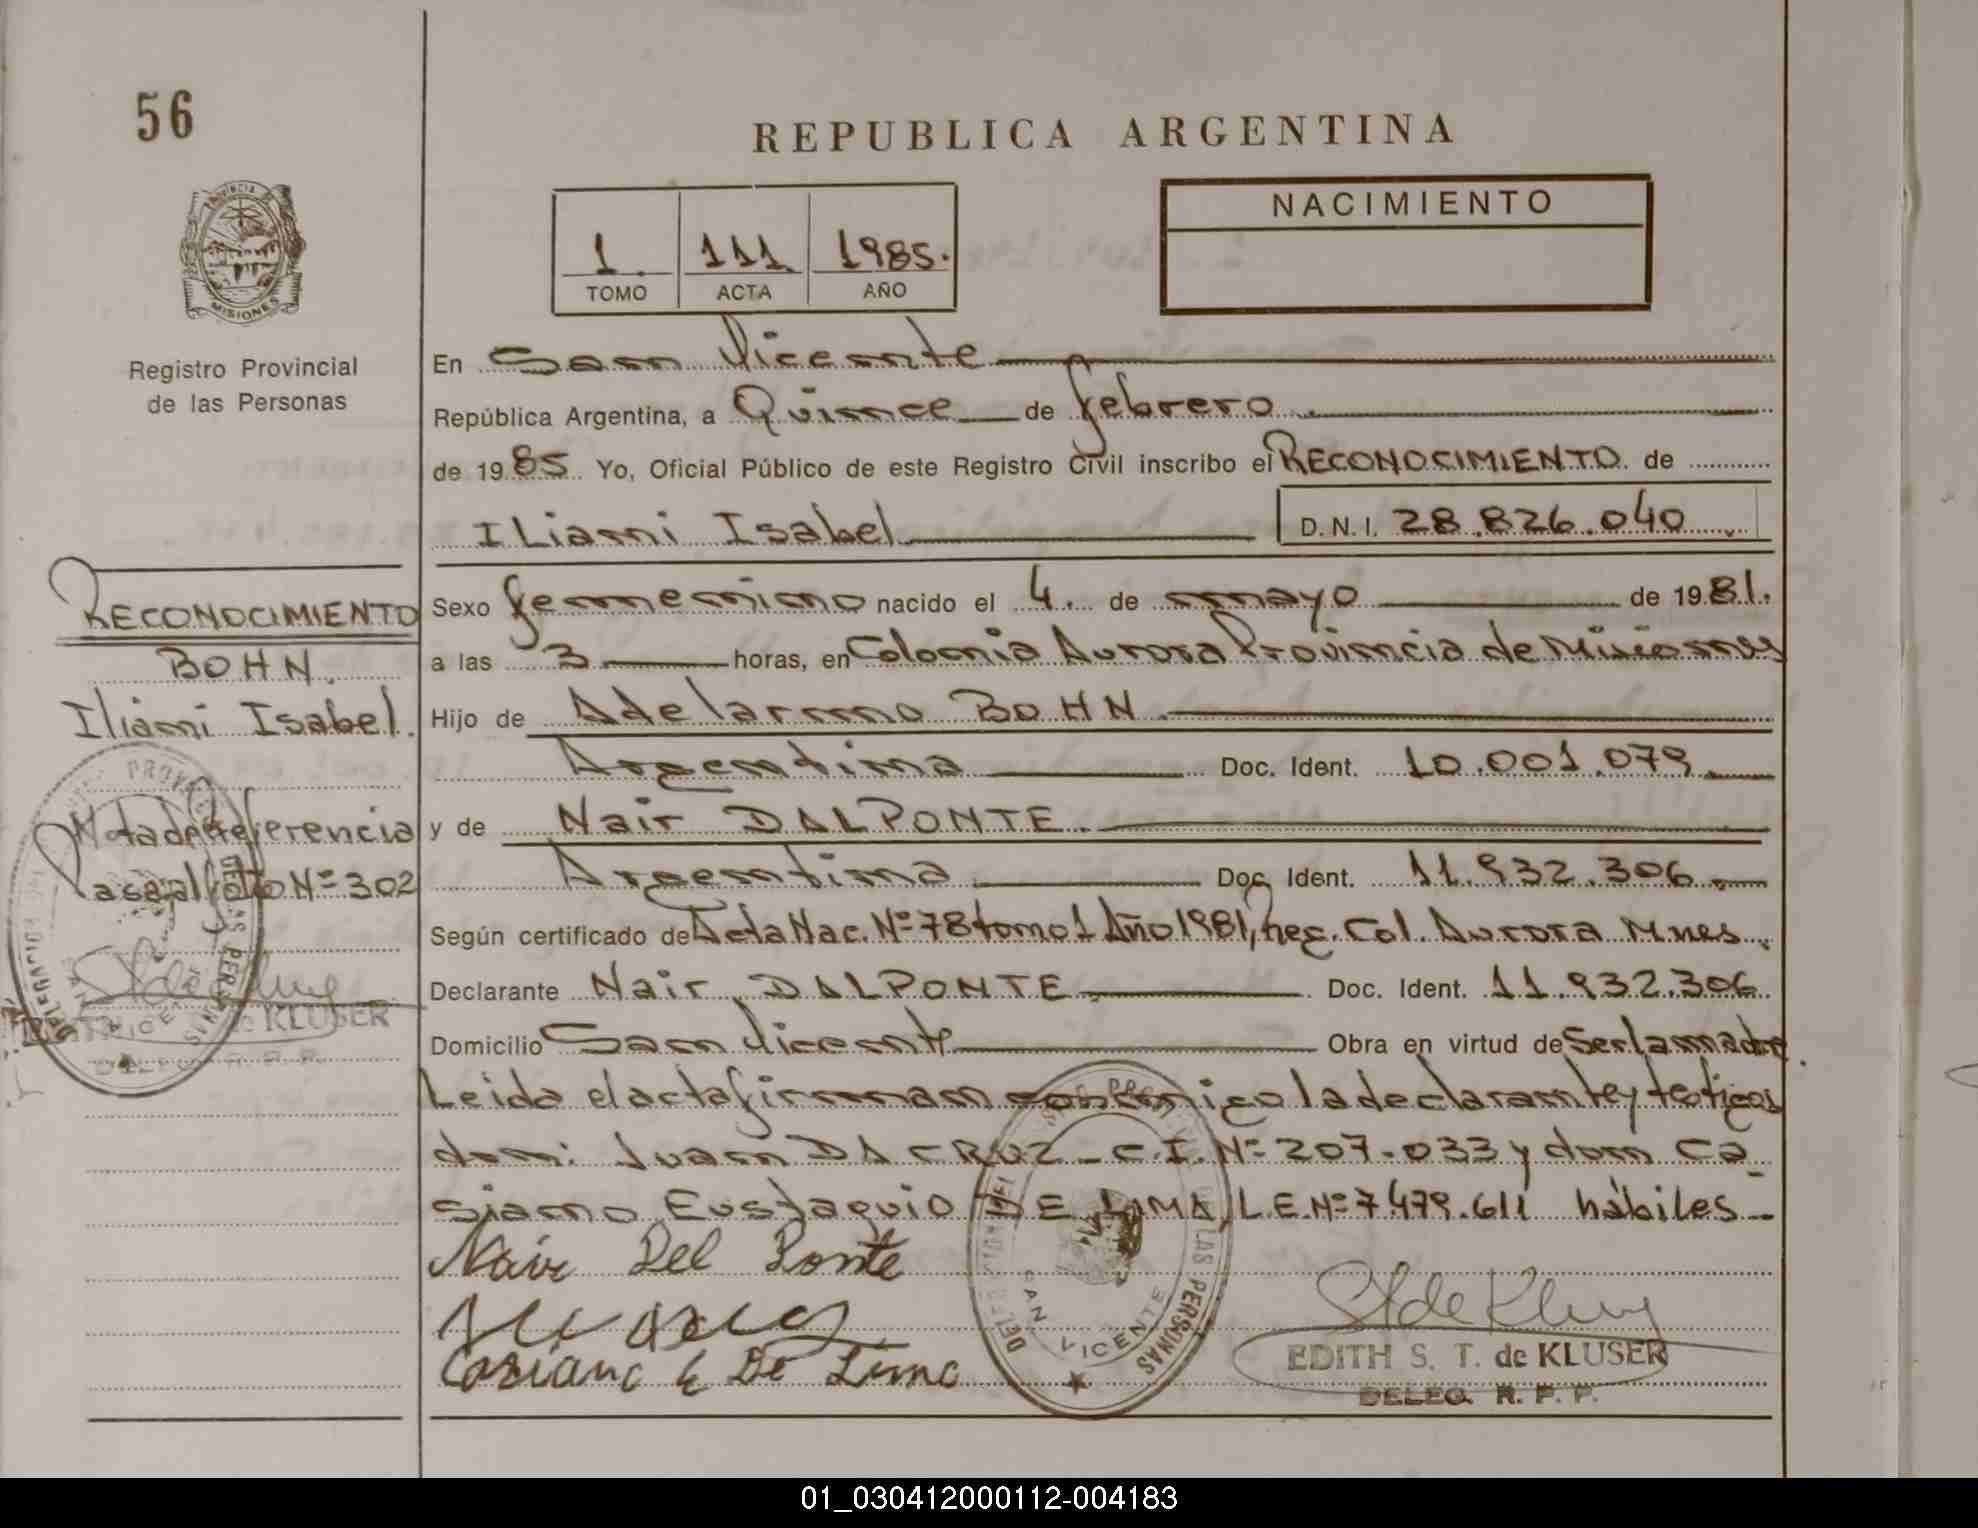 56
REPUBLICA ARGENTINA
Provincia
MISIONES
Registro Provincial
de las Personas
1 TOMO
111 ACTA
1985. AÑO
NACIMIENTO
En San Vicente
República Argentina, a Quince de febrero.
de 1985 Yo, Oficial Público de este Registro Civil inscribo el RECONOCIMIENTO de
ILiani Isabel D.N.I. 28.826.040
Sexo femenino nacido el 4. de mayo de 1981.
a las 3 horas, en Colonia Aurora Provincia de Misiones
Hijo de Adelarmo BOHN.
Argentina Doc. Ident. 10.001.079
y de Nair DALPONTE.
Argentina Doc. Ident. 11.932.306
Según certificado de Acta Nac. Nº 78 tomo 1 Año 1981, Reg. Col. Aurora Mnes.
Declarante Nair DALPONTE. Doc. Ident. 11.932.306
Domicilio San Vicente Obra en virtud de Ser la madre.
Leida el acta firman conmigo la declarante y testigos
don: Juan DA CRUZ - C.I. Nº 207.033 y don Ca-
siano Eustaquio DE LIMA, L.E. Nº 7.479.611 hábiles
Nair Del Ponte
Casiano E De Lima
SAN VICENTE
LAS PERSONAS
EDITH S. T. de KLUSER
DELEG. R. P. P.
RECONOCIMIENTO
BOHN.
Iliani Isabel.
Nota de Referencia
Pasa al folio Nº 302
de KLUSER
DELEG. R. P. P.
01_030412000112-004183